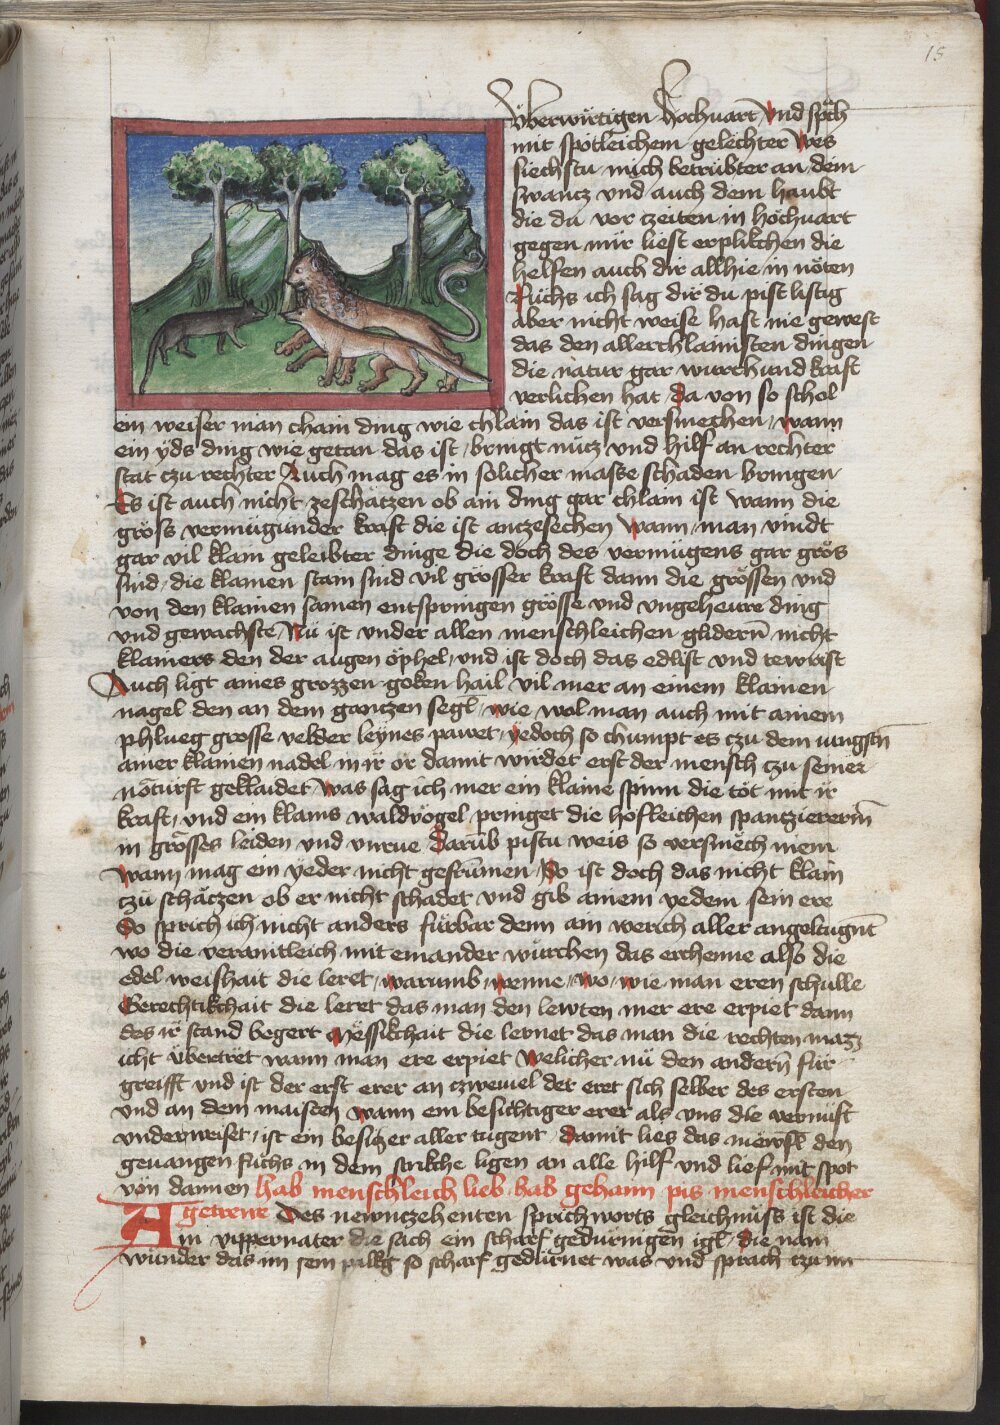 15
Vberwürtigen hochuart vnd sprach
mit spotleichem gelechter Wes
siechstu mich betrübter an dem
swancz vnd auch dem haubt
die du vor czeiten in hochuart
gegen mir liest erplikchen die
helfen auch dir allhie in nöten
Füchs ich sag dir du pist listig
aber nicht weise hast nie gewest
das den allerchlainisten dingen
die natur gar wurchund kraft
verlichen hat Da von so schol
ein weiser man chain ding wie chlain das ist versmechen wann
ein yds ding wie getan das ist bringt nücz vnd hilf an rechter
stat czu rechter Auch mag es in solicher masse schaden bringen
Es ist auch nicht zeschäczen ob ain ding gar chlain ist wann die
gröss vermügunder kraft die ist anczesechen Wann man vindt
gar vil klain geleibter dinge die doch des vermügens gar gros
sind die klainen stain sind vil grösser kraft dann die grössen vnd
von den klainen samen entspringen grösse vnd vngeheure ding
vnd gewachste Nu ist vnder allen menschleichen glidern nicht
klainers den der augen öphel vnd ist doch das edlist vnd tewrist
Auch ligt aines grozzen goken hail vil mer an einem klainen
nagel den an dem ganczen segl wie wol man auch mit ainem
phlueg grosse velder leynes pawet yedoch so chumpt es czu dem iungstn
ainer klainen nadel in ir ör damit wirdet erst der mensch czu seiner
nöturft geklaidet Was sag ich mer ein klaine spinn die töt mit ir
kraft vnd ein klains waldvögel pringet die hofleichen spanczirerinn
in grösses leiden vnd vnrue Darüb pistu weis so versmech niem
wann mag ein yeder nicht gefrümen So ist doch das nicht klain
czu schäczen ob er nicht schadet vnd gib ainem yedem sein ere
So sprich ich nicht anders fürbar denn ain werich aller angeltugnt
wo die veraintleich mit einander würchen das erchenne also die
edel weishait die leret warumb wenne wo wie man eren schulle
Gerechtikchait die leret das man den lewten mer ere erpiet dann
des ir stand begert Mëssikchait die lernet das man die rechten mazz
icht übertret wann man ere erpiet Welicher nü den andern für
greifft vnd ist der erst erer an czweiuel der eret sich selber des ersten
vnd an dem maisten wann ein besichtiger erer als vns die vernüft
vnderweiset ist ein besiczer aller tugent Damit lies das mewsl den
geuangen fuchs in dem strikche ligen an alle hilf vnd lief mit spot
von dannen hab menschleich lieb hab gehann pis menschleicher
getrewe Des newnczehenten sprichworts gleichnüss ist die
Ain vippernater die sach ein scharf gedürnigen igl die nam
wunder das im sein palkg so scharf gedürnet was vnd sprach czu im